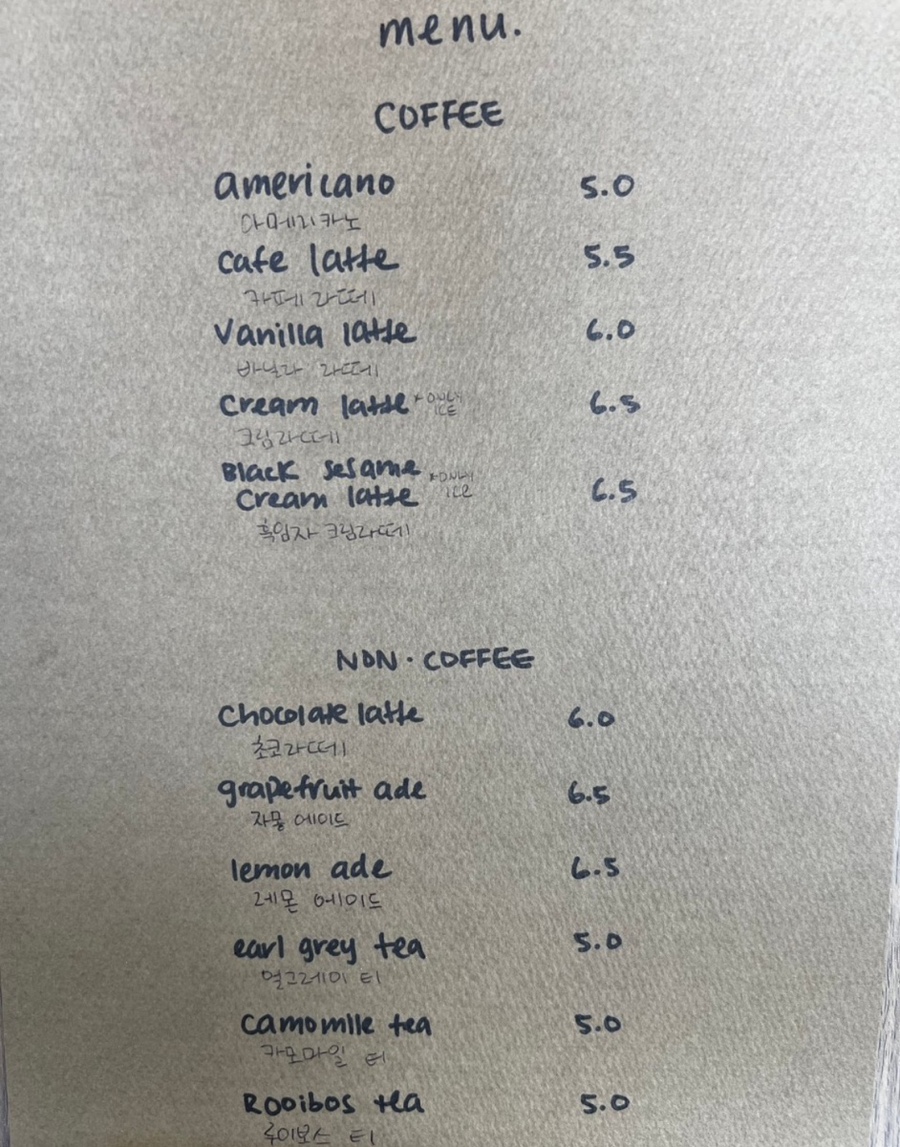 menu.
COFFEE
americano 5.0
아메리카노
cafe latte 5.5
카페 라떼
Vanilla latte 6.0
바닐라 라떼
Cream latte *ONLY ICE 6.5
크림라떼
Black sesame
Cream latte *ONLY ICE 6.5
흑임자 크림라떼
NON·COFFEE
Chocolate latte 6.0
초코라떼
grapefruit ade 6.5
자몽 에이드
lemon ade 6.5
레몬 에이드
earl grey tea 5.0
얼그레이 티
camomile tea 5.0
카모마일 티
Rooibos tea 5.0
루이보스 티